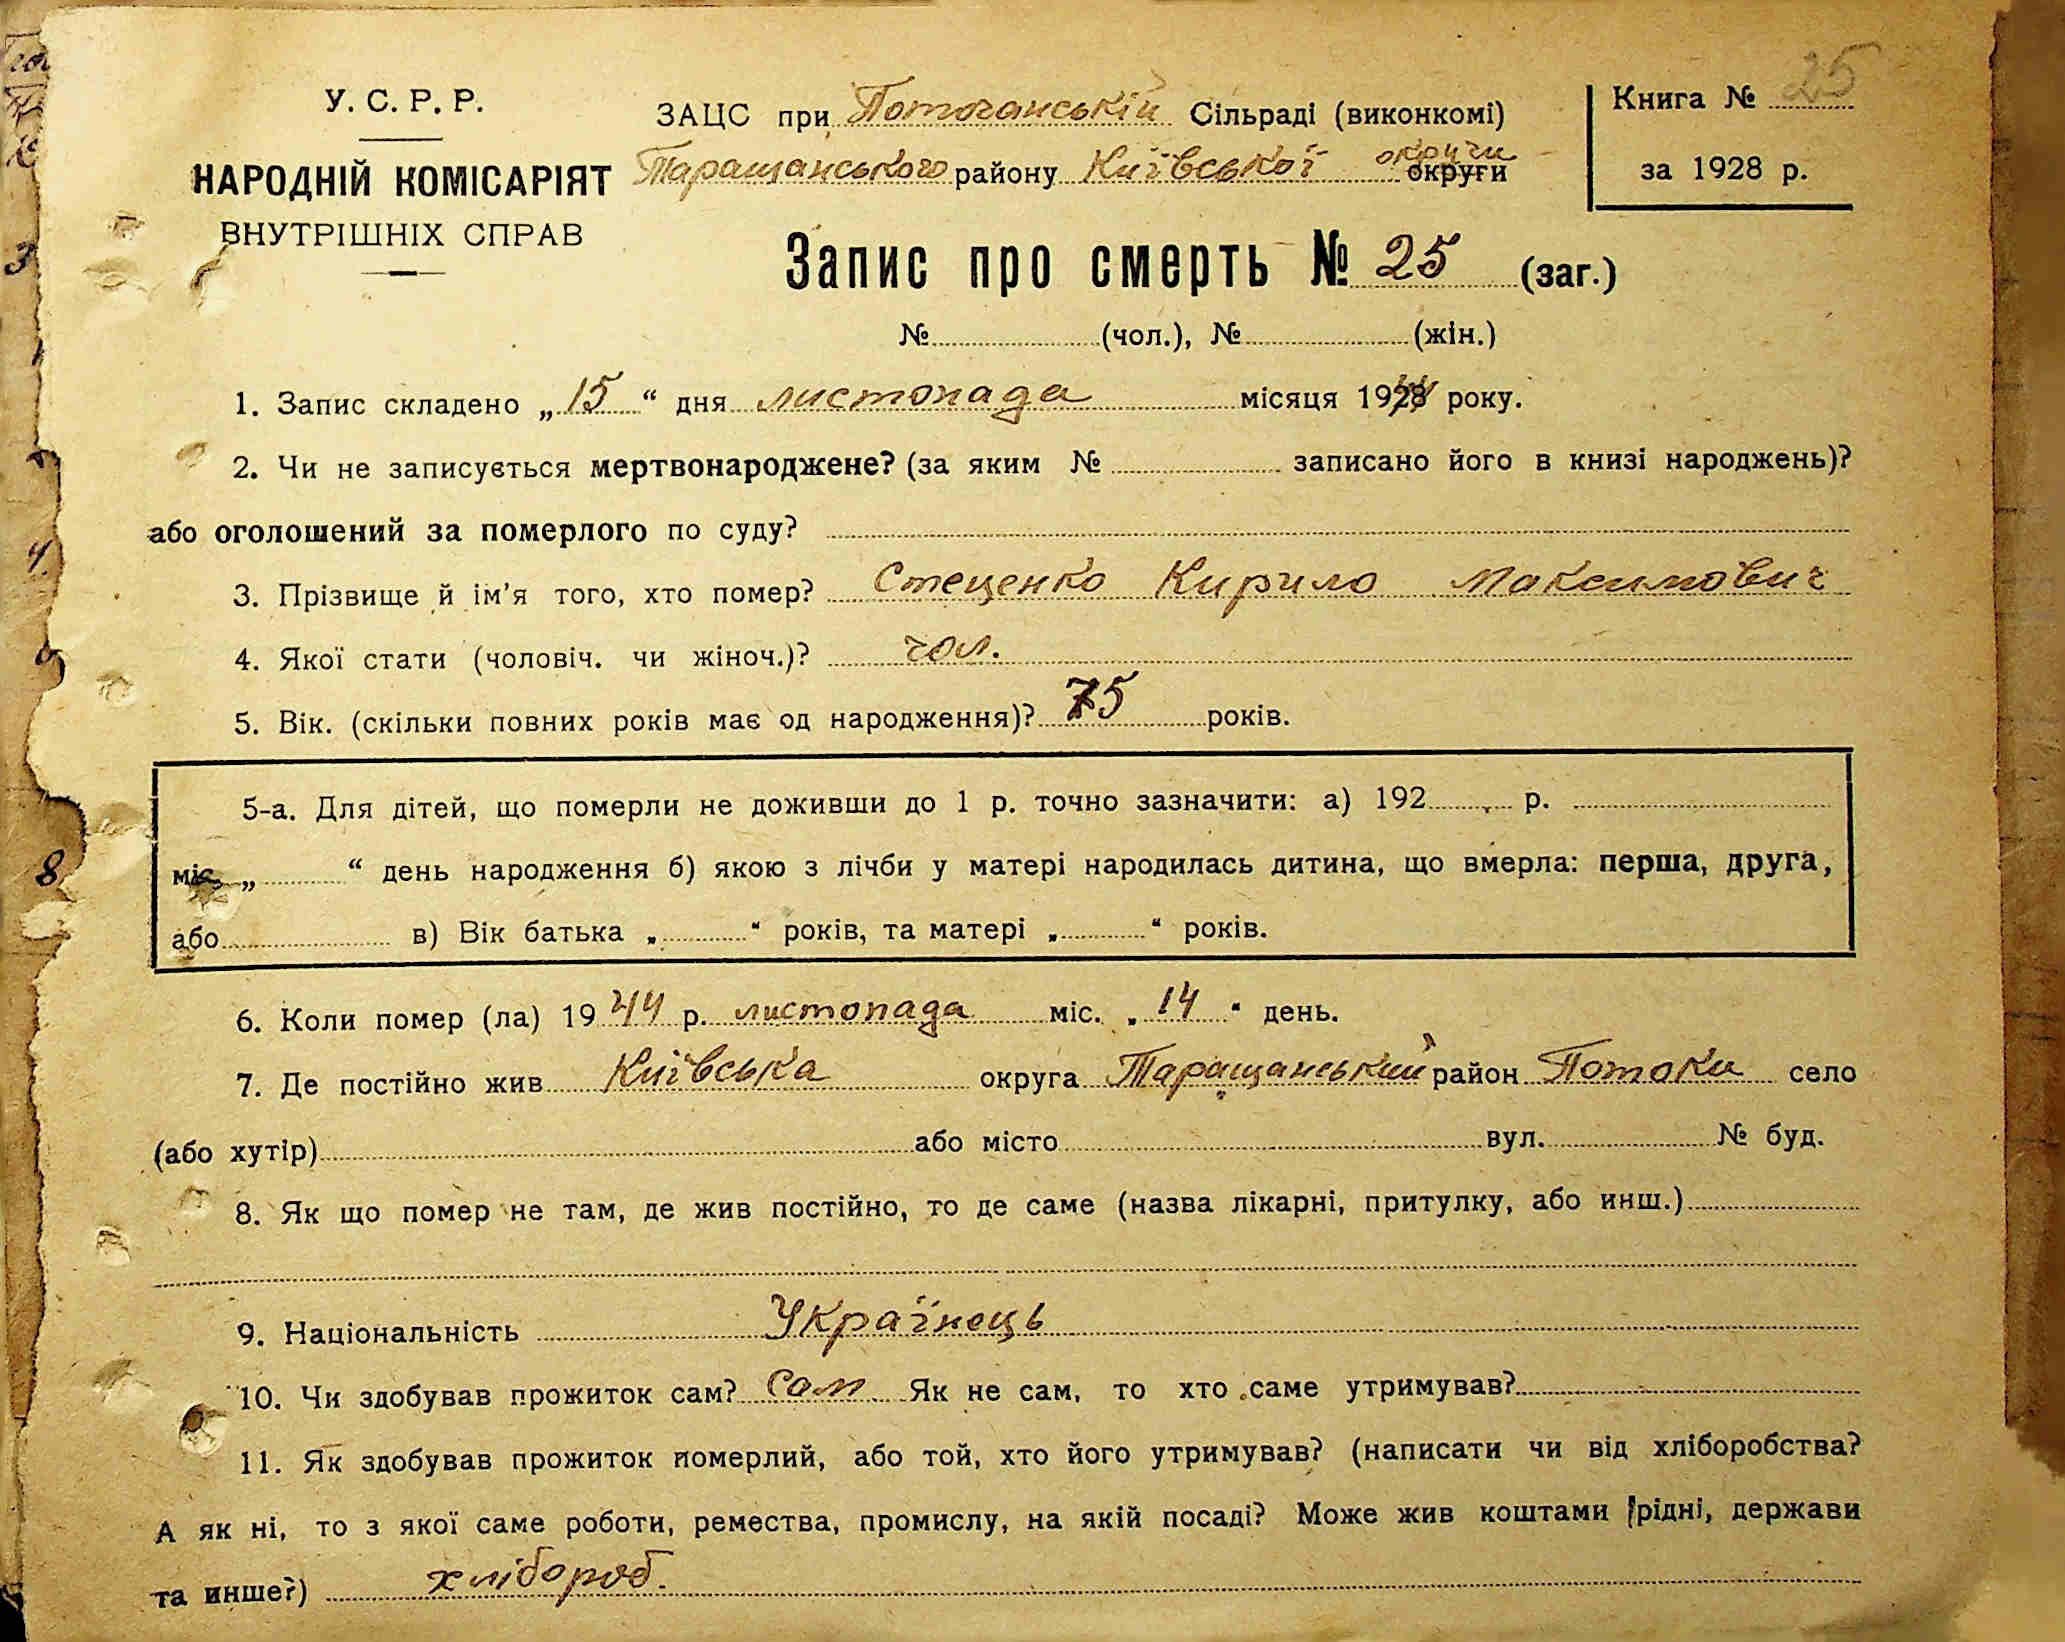 У. С. Р. Р.
НАРОДНІЙ КОМІСАРІЯТ
ВНУТРІШНІХ СПРАВ
ЗАЦС при Поточанській Сільраді (виконкомі)
Таращанського району Київської округи округи
Книга № 25
за 1928 р.
Запис про смерть № 25 (заг.)
№ (чол.), № (жін.)
1. Запис складено „15“ дня листопада місяця 1944 року.
2. Чи не записується мертвонароджене? (за яким № записано його в книзі народжень)?
або оголошений за померлого по суду?
3. Прізвище й ім’я того, хто помер? Стеценко Кирило Максимович
4. Якої стати (чоловіч. чи жіноч.)? чол.
5. Вік. (скільки повних років має од народження)? 75 років.
5-а. Для дітей, що померли не доживши до 1 р. точно зазначити: а) 192 р.
міс. „ “ день народження б) якою з лічби у матері народилась дитина, що вмерла: перша, друга,
або в) Вік батька „ “ років, та матері „ “ років.
6. Коли помер (ла) 1944 р. листопада міс. „14“ день.
7. Де постійно жив Київська округа Таращанський район Потоки село
(або хутір) або місто вул. № буд.
8. Як що помер не там, де жив постійно, то де саме (назва лікарні, притулку, або инш.)
9. Національність Українець
10. Чи здобував прожиток сам? Сам Як не сам, то хто саме утримував?
11. Як здобував прожиток померлий, або той, хто його утримував? (написати чи від хліборобства?
А як ні, то з якої саме роботи, ремества, промислу, на якій посаді? Може жив коштами рідні, держави
та инше?) хлібороб.